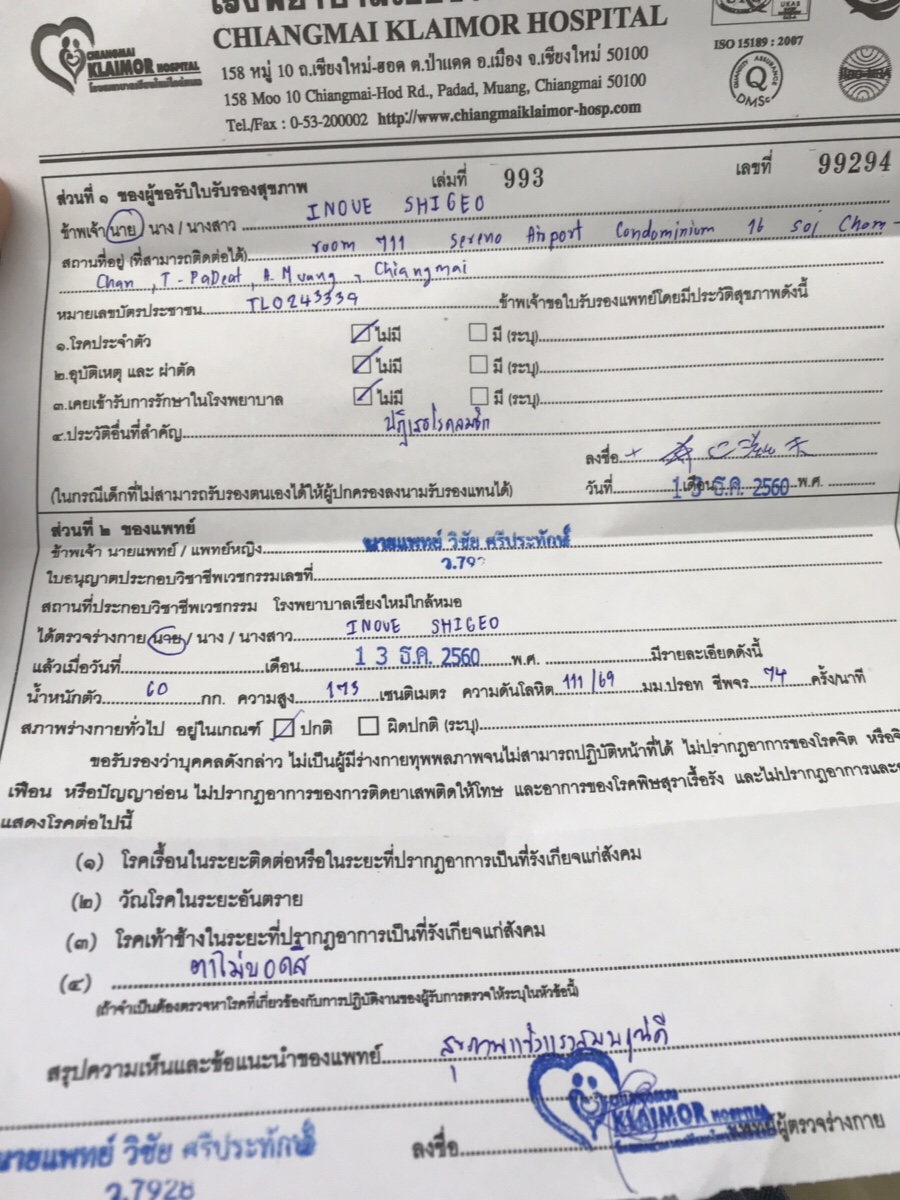 CHIANGMAI KLAIMOR HOSPITAL
CHIANGMAI
KLAIMOR HOSPITAL
158 หมู่ 10 ถ.เชียงใหม่-ฮอด ต.ป่าแดด อ.เมือง จ.เชียงใหม่ 50100
158 Moo 10 Chiangmai-Hod Rd., Padad, Muang, Chiangmai 50100
Tel./Fax : 0-53-200002 http://www.chiangmaiklaimor-hosp.com
UKAS
ISO 15189 : 2007
QUALITY ASSURANCE
Q
DMSc
ส่วนที่ ๑ ของผู้ขอรับใบรับรองสุขภาพ เล่มที่ 993 เลขที่ 99294
ข้าพเจ้า นาย / นาง / นางสาว INOUE SHIGEO
สถานที่อยู่ (ที่สามารถติดต่อได้) room 711 Sereno Airport Condominium 16 Soi Chom-
Chan, T-PaDeat, A. Muang, Chiangmai
หมายเลขบัตรประชาชน TL0243339 ข้าพเจ้าขอใบรับรองแพทย์โดยมีประวัติสุขภาพดังนี้
๑.โรคประจำตัว ไม่มี มี (ระบุ)
๒.อุบัติเหตุ และ ผ่าตัด ไม่มี มี (ระบุ)
๓.เคยเข้ารับการรักษาในโรงพยาบาล ไม่มี มี (ระบุ)
๔.ประวัติอื่นที่สำคัญ ปฏิเสธโรคลมชัก
ลงชื่อ
(ในกรณีเด็กที่ไม่สามารถรับรองตนเองได้ให้ผู้ปกครองลงนามรับรองแทนได้) วันที่ 13 เดือน ธ.ค. 2560 พ.ศ.
ส่วนที่ ๒ ของแพทย์
ข้าพเจ้า นายแพทย์ / แพทย์หญิง นายแพทย์ วิชัย ศรีประทักษ์
ใบอนุญาตประกอบวิชาชีพเวชกรรมเลขที่ ว.792
สถานที่ประกอบวิชาชีพเวชกรรม โรงพยาบาลเชียงใหม่ใกล้หมอ
ได้ตรวจร่างกาย นาย / นาง / นางสาว INOUE SHIGEO
แล้วเมื่อวันที่ เดือน 13 ธ.ค. 2560 พ.ศ. มีรายละเอียดดังนี้
น้ำหนักตัว 60 กก. ความสูง 173 เซนติเมตร ความดันโลหิต 111/69 มม.ปรอท ชีพจร 74 ครั้ง/นาที
สภาพร่างกายทั่วไป อยู่ในเกณฑ์ ปกติ ผิดปกติ (ระบุ)
ขอรับรองว่าบุคคลดังกล่าว ไม่เป็นผู้มีร่างกายทุพพลภาพจนไม่สามารถปฏิบัติหน้าที่ได้ ไม่ปรากฏอาการของโรคจิต หรือจิ
เฟือน หรือปัญญาอ่อน ไม่ปรากฏอาการของการติดยาเสพติดให้โทษ และอาการของโรคพิษสุราเรื้อรัง และไม่ปรากฏอาการและ
แสดงโรคต่อไปนี้
(๑) โรคเรื้อนในระยะติดต่อหรือในระยะที่ปรากฏอาการเป็นที่รังเกียจแก่สังคม
(๒) วัณโรคในระยะอันตราย
(๓) โรคเท้าช้างในระยะที่ปรากฏอาการเป็นที่รังเกียจแก่สังคม
(๔) ตาไม่บอดสี
(ถ้าจำเป็นต้องตรวจหาโรคที่เกี่ยวข้องกับการปฏิบัติงานของผู้รับการตรวจให้ระบุในหัวข้อนี้)
สรุปความเห็นและข้อแนะนำของแพทย์ สุขภาพแข็งแรงสมบูรณ์ดี
KLAIMOR HOSPITAL
ลงชื่อ แพทย์ผู้ตรวจร่างกาย
นายแพทย์ วิชัย ศรีประทักษ์
ว.7928